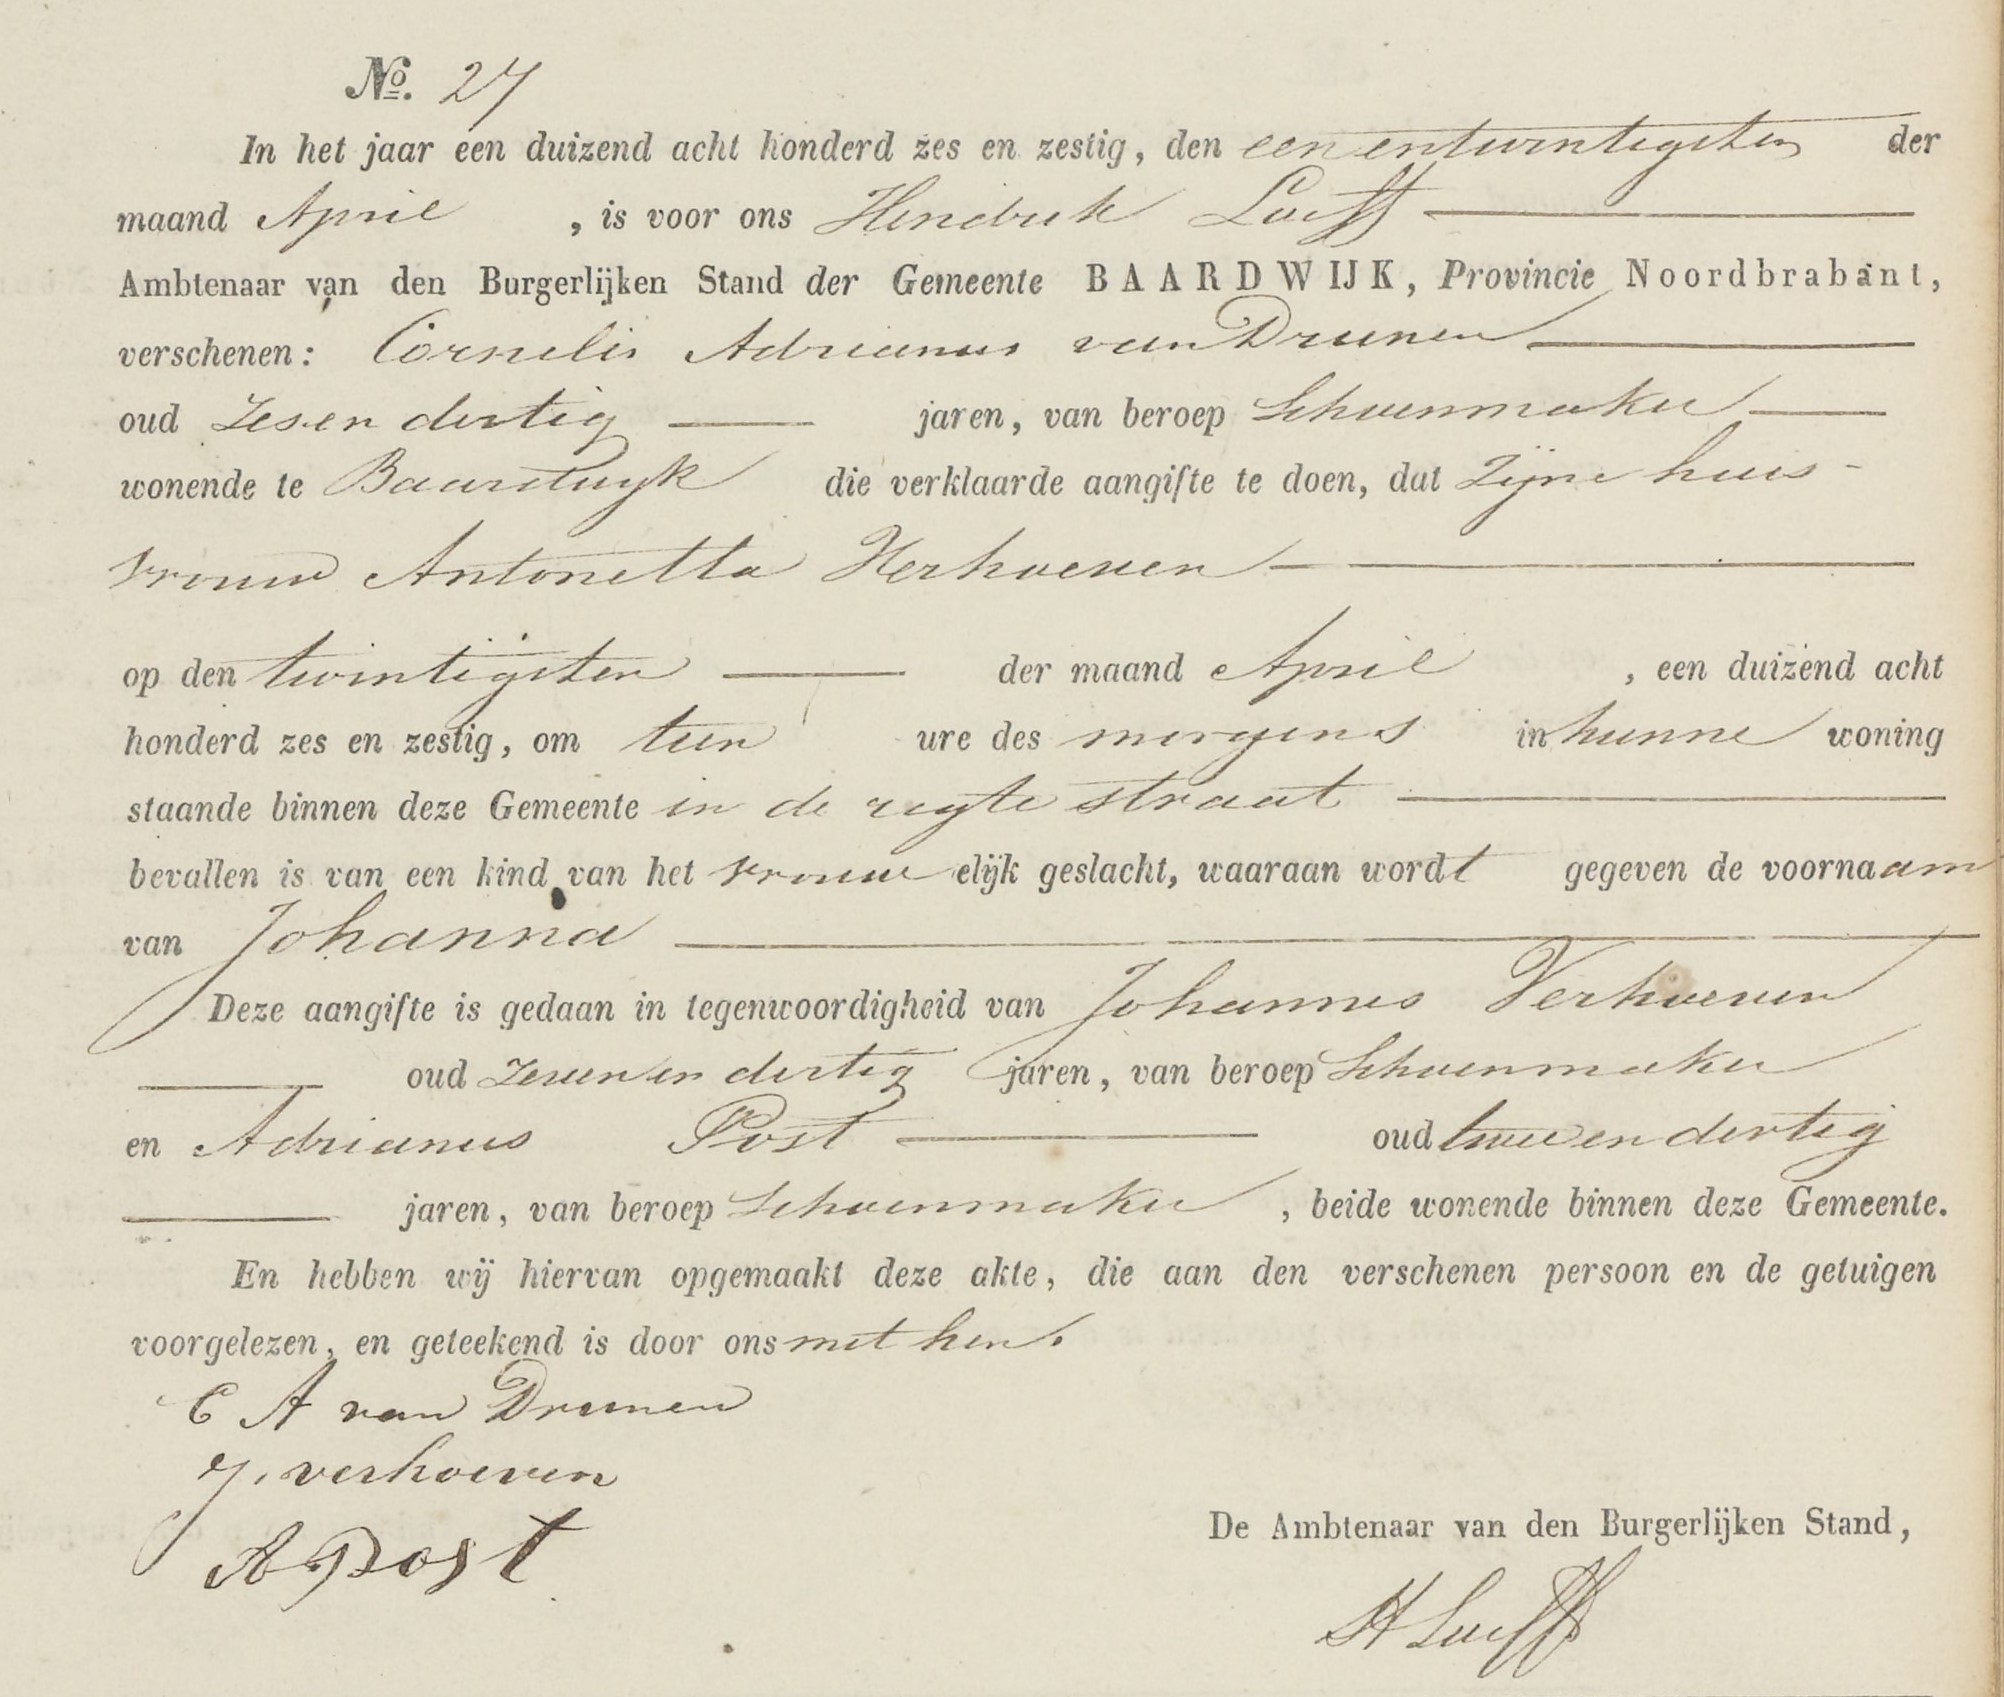 No. 27
In het jaar een duizend acht honderd zes en zestig, den eenentwintigsten der
maand April , is voor ons Hendrik Loeff
Ambtenaar van den Burgerlijken Stand der Gemeente BAARDWIJK, Provincie Noordbrabant,
verschenen: Cornelis Adrianus van Drunen
oud zesen dertig jaren, van beroep Schoenmaker
wonende te Baardwyk die verklaarde aangifte te doen, dat zijne huis-
vrouw Antonetta Verhoeven
op den twintigsten der maand April , een duizend acht
honderd zes en zestig, om tien ure des morgens in hunne woning
staande binnen deze Gemeente in de regte straat
bevallen is van een kind van het vrouwelijk geslacht, waaraan wordt gegeven de voornaam
van Johanna
Deze aangifte is gedaan in tegenwoordigheid van Johannes Verhoeven
oud zeven en dertig jaren, van beroep Schoenmaker
en Adrianus Post oud twee en dertig
jaren, van beroep Schoenmaker , beide wonende binnen deze Gemeente.
En hebben wij hiervan opgemaakt deze akte, die aan den verschenen persoon en de getuigen
voorgelezen, en geteekend is door ons met hen.
C A van Drunen
J. verhoeven
A Post
De Ambtenaar van den Burgerlijken Stand,
H Loeff